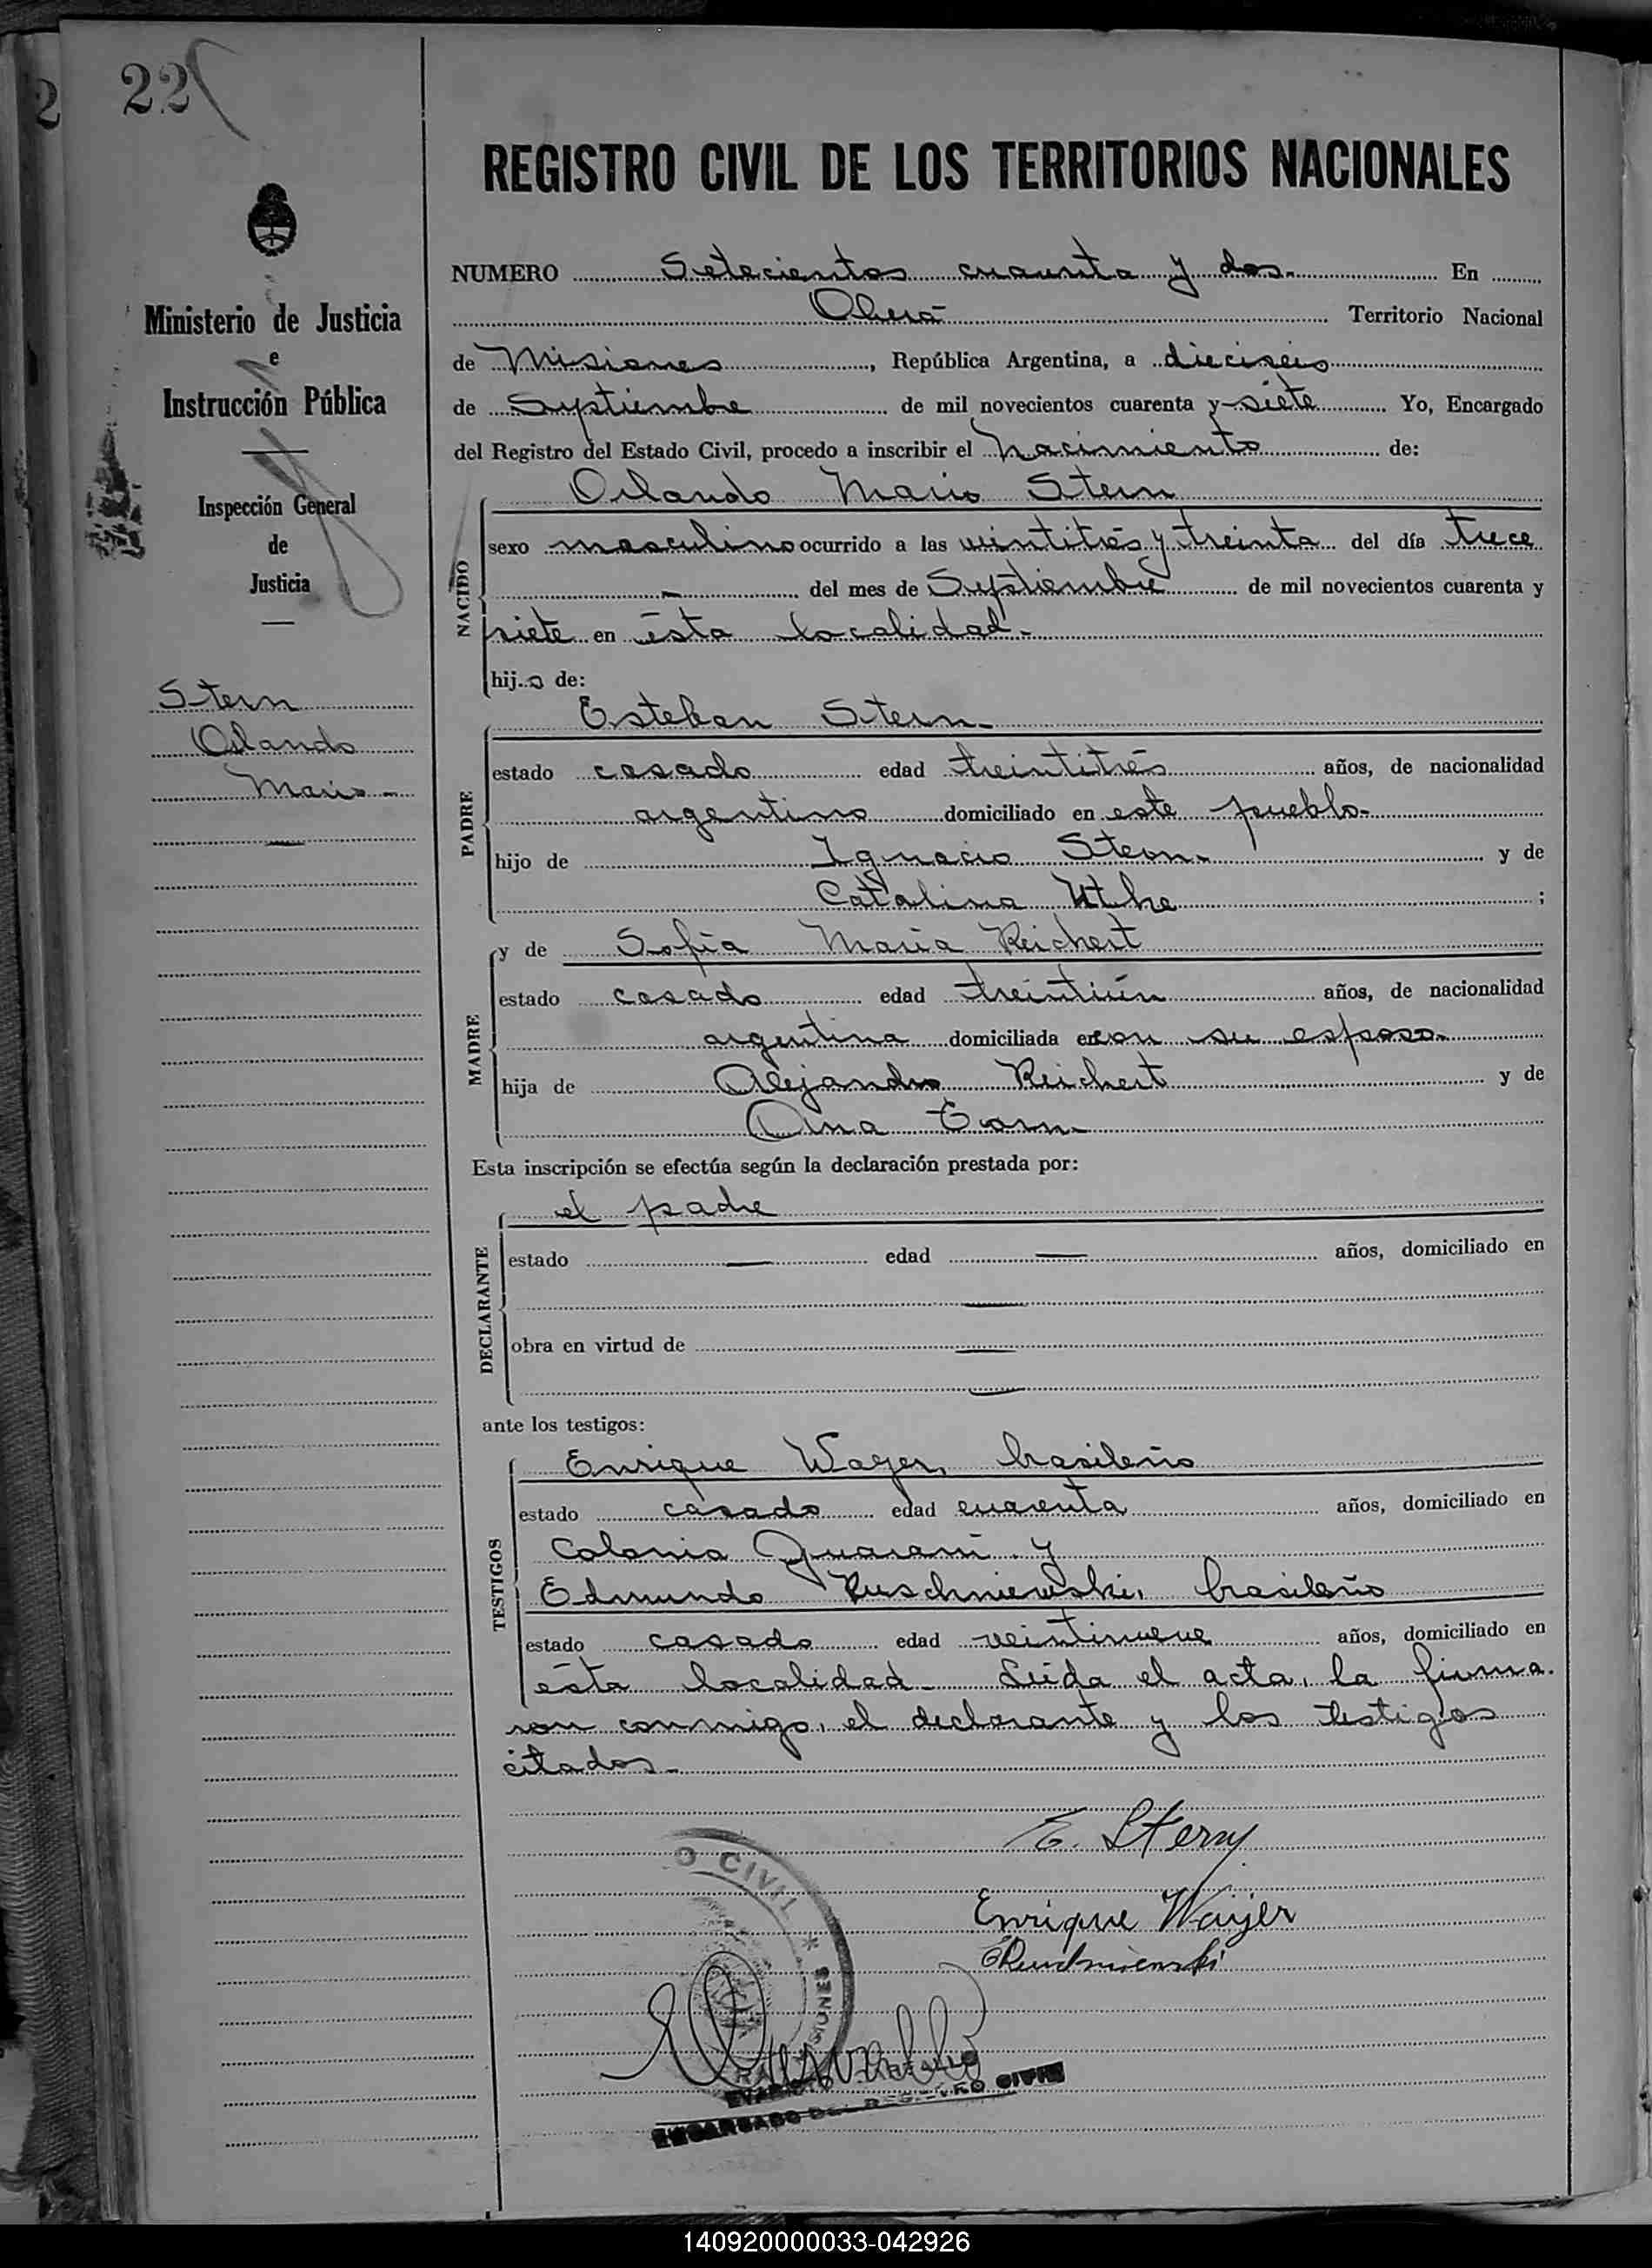 22
REGISTRO CIVIL DE LOS TERRITORIOS NACIONALES
Ministerio de Justicia
e
Instrucción Pública
Inspección General
de
Justicia
Stern
Orlando
Mario
NUMERO Setecientos cuarenta y dos. En
Oberá Territorio Nacional
de Misiones, República Argentina, a dieciseis
de Septiembre de mil novecientos cuarenta y siete Yo, Encargado
del Registro del Estado Civil, procedo a inscribir el nacimiento de:
Orlando Mario Stern
NACIDO
sexo masculino ocurrido a las veintitrés y treinta del día trece
del mes de Septiembre de mil novecientos cuarenta y
siete en ésta localidad.
hijo de:
Esteban Stern
PADRE
estado casado edad treintitrés años, de nacionalidad
argentino domiciliado en este pueblo
hijo de Ignacio Stern y de
Catalina Utke;
y de Sofia Maria Reichert
MADRE
estado casado edad treintiún años, de nacionalidad
argentina domiciliada en con su esposo
hija de Alejandro Reichert y de
Ana
Esta inscripción se efectúa según la declaración prestada por:
el padre
DECLARANTE
estado edad años, domiciliado en
obra en virtud de
ante los testigos:
Enrique Wayer, brasileño
TESTIGOS
estado casado edad cuarenta años, domiciliado en
Colonia Guaraní y
Edmundo Ruschniewski, brasileño
estado casado edad veintinueve años, domiciliado en
ésta localidad. Leída el acta, la firma
ron conmigo, el declarante y los testigos
citados
E. Stern
Enrique Wayer
O CIVIL *
MISIONES
ENCARGADO DEL REGISTRO CIVIL
140920000033-042926